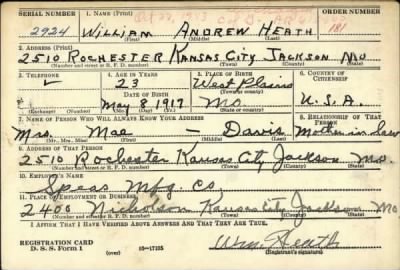 SERIAL NUMBER 1. NAME (Print) ORDER NUMBER
2924 WILLIAM ANDREW HEATH 181
(First) (Middle) (Last)
2. ADDRESS (Print)
2510 ROCHESTER KANSAS CITY JACKSON MO
(Number and street or R. F. D. number) (Town) (County) (State)
3. TELEPHONE 4. AGE IN YEARS 5. PLACE OF BIRTH 6. COUNTRY OF CITIZENSHIP
23 West Plains
DATE OF BIRTH (Town or county)
May 8 1917 Mo U.S.A.
(Exchange) (Number) (Mo.) (Day) (Yr.) (State or country)
7. NAME OF PERSON WHO WILL ALWAYS KNOW YOUR ADDRESS 8. RELATIONSHIP OF THAT PERSON
Mrs. Mae — Davis Mother in law
(Mr., Mrs., Miss) (First) (Middle) (Last)
9. ADDRESS OF THAT PERSON
2510 Rochester Kansas City Jackson Mo.
(Number and street or R. F. D. number) (Town) (County) (State)
10. EMPLOYER'S NAME
Speas Mfg. Co.
11. PLACE OF EMPLOYMENT OR BUSINESS
2400 Nicholson Kansas City Jackson Mo
(Number and street or R. F. D. number) (Town) (County) (State)
I AFFIRM THAT I HAVE VERIFIED ABOVE ANSWERS AND THAT THEY ARE TRUE.
REGISTRATION CARD
D. S. S. Form 1 (over) 16—17105 Wm. Heath
(Registrant's signature)